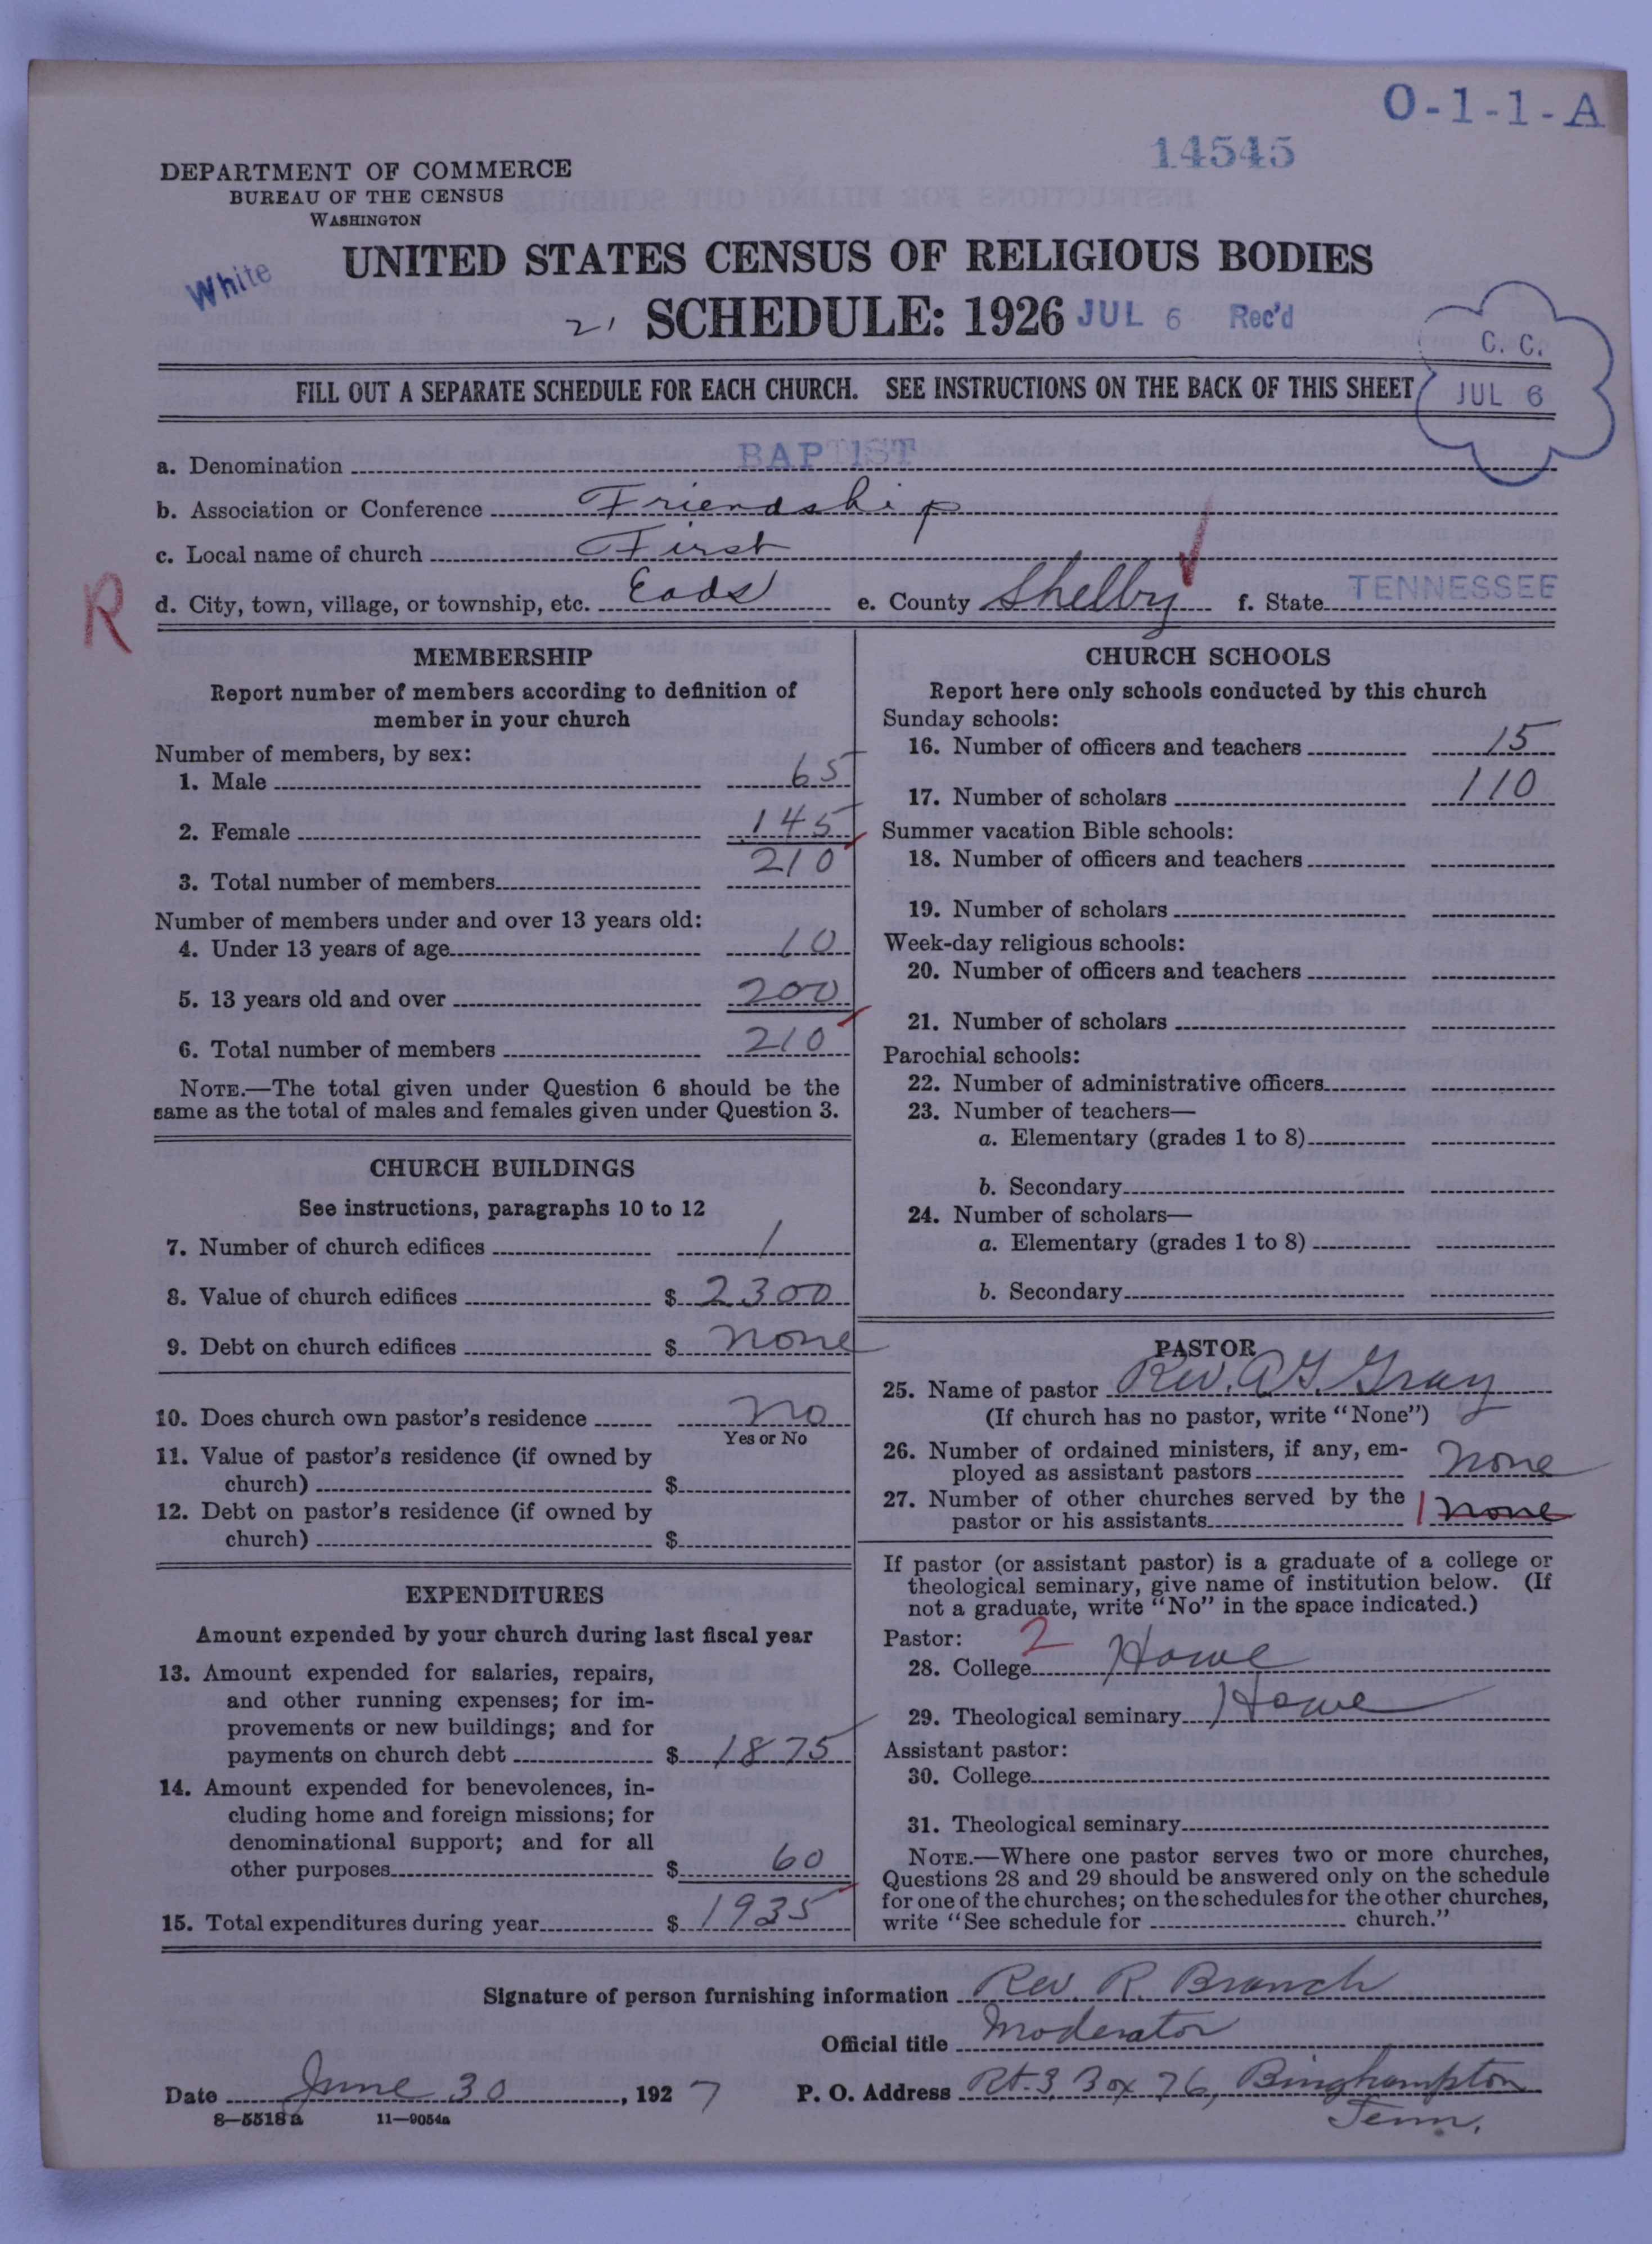 O-1-1-A
14545
DEPARTMENT OF COMMERCE
BUREAU OF THE CENSUS
WASHINGTON
White
UNITED STATES CENSUS OF RELIGIOUS BODIES
SCHEDULE: 1926 JUL 6 Rec'd
C. C.
JUL 6
FILL OUT A SEPARATE SCHEDULE FOR EACH CHURCH. SEE INSTRUCTIONS ON THE BACK OF THIS SHEET
a. Denomination BAPTIST
b. Association or Conference Friendship
c. Local name of church First
R
d. City, town, village, or township, etc. Eads e. County Shelby f. State TENNESSEE
MEMBERSHIP
Report number of members according to definition of
member in your church
Number of members, by sex:
1. Male 65
2. Female 145
3. Total number of members 210
Number of members under and over 13 years old:
4. Under 13 years of age 10
5. 13 years old and over 200
6. Total number of members 210
NOTE.—The total given under Question 6 should be the
same as the total of males and females given under Question 3.
CHURCH BUILDINGS
See instructions, paragraphs 10 to 12
7. Number of church edifices 1
8. Value of church edifices $ 2300
9. Debt on church edifices $ none
10. Does church own pastor's residence no
Yes or No
11. Value of pastor's residence (if owned by
church) $
12. Debt on pastor's residence (if owned by
church) $
EXPENDITURES
Amount expended by your church during last fiscal year
13. Amount expended for salaries, repairs,
and other running expenses; for im-
provements or new buildings; and for
payments on church debt $ 1875
14. Amount expended for benevolences, in-
cluding home and foreign missions; for
denominational support; and for all
other purposes $ 60
15. Total expenditures during year $ 1935
CHURCH SCHOOLS
Report here only schools conducted by this church
Sunday schools:
16. Number of officers and teachers 15
17. Number of scholars 110
Summer vacation Bible schools:
18. Number of officers and teachers
19. Number of scholars
Week-day religious schools:
20. Number of officers and teachers
21. Number of scholars
Parochial schools:
22. Number of administrative officers
23. Number of teachers—
a. Elementary (grades 1 to 8)
b. Secondary
24. Number of scholars—
a. Elementary (grades 1 to 8)
b. Secondary
PASTOR
25. Name of pastor Rev. A G. Gray
(If church has no pastor, write "None")
26. Number of ordained ministers, if any, em-
ployed as assistant pastors none
27. Number of other churches served by the
pastor or his assistants 1 none
If pastor (or assistant pastor) is a graduate of a college or
theological seminary, give name of institution below. (If
not a graduate, write "No" in the space indicated.)
Pastor: 2
28. College Howe
29. Theological seminary Howe
Assistant pastor:
30. College
31. Theological seminary
NOTE.—Where one pastor serves two or more churches,
Questions 28 and 29 should be answered only on the schedule
for one of the churches; on the schedules for the other churches,
write "See schedule for church."
Signature of person furnishing information Rev. R. Branch
Official title Moderator
Date June 30, 1927 P. O. Address Rt. 3, Box 76, Binghampton
Tenn.
8—5518a 11—9054a